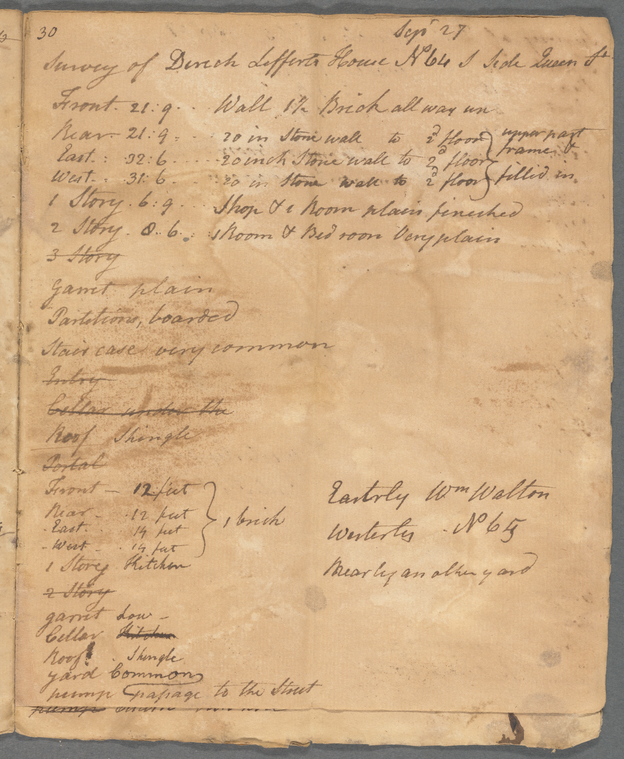 30 Sepr 27
Survey of Dirick Lefferts House No 64 S Side Queen St
Front 21:9 Wall 1½ Brick all way up
Rear 21:9 20 in Stone wall to 2d floor } upper part
East: 32:6 20 inch Stone wall to 2d floor } frame &
West 31:6 20 in Stone wall to 2d floor } filled in
1 Story 6:9 Shop & 1 Room plain finished
2 Story 8:6 1 Room & Bed room Very plain
3 Story
Garret plain
Partitions, boarded
Stair case very common
Entry
Cellar under the
Roof Shingle
Portal
Front 12 feet
Rear 12 feet
East 14 feet } 1 brick
West 14 feet
1 Storey Kitchen
2 Story
garret Low
Cellar Kitchen
Roof Shingle
yard Common
pump passage to the Street
pump
Easterly Wm Walton
Westerly No 65
Rear by another yard